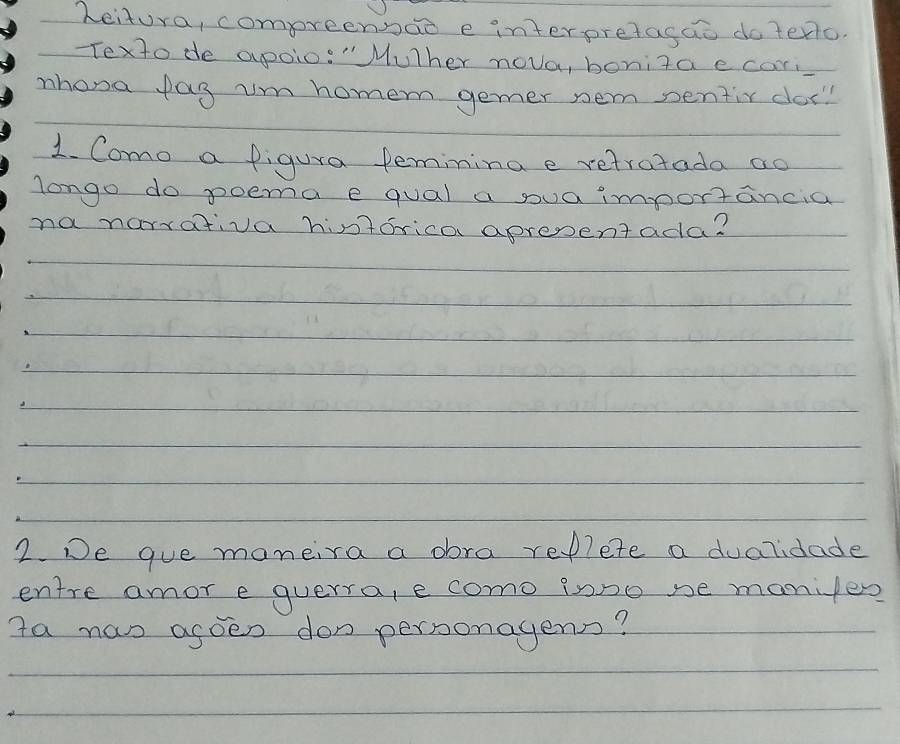 Leitura, compreensão e interpretação do texto.
Texto de apoio: "Mulher nova, bonita e cari_
nhosa faz um homem gemer sem sentir dor"
1. Como a figura feminina e retratada ao
longo do poema e qual a sua importância
na narrativa histórica apresentada?
2. De que maneira a obra reflete a dualidade
entre amor e guerra, e como isso se manifes_
ta nas ações dos personagens?